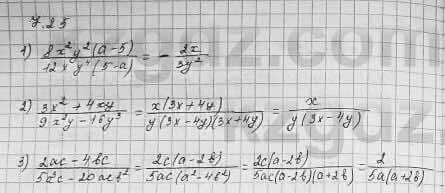 7.25
1) \frac{8x²y²(a-5)}{12xy⁴(5-a)} = - \frac{2x}{3y²}
2) \frac{3x² + 4xy}{9x²y - 16y³} = \frac{x(3x+4y)}{y(3x-4y)(3x+4y)} = \frac{x}{y(3x-4y)}
3) \frac{2ac - 4bc}{5a³c - 20acb²} = \frac{2c(a-2b)}{5ac(a²-4b²)} = \frac{2c(a-2b)}{5ac(a-2b)(a+2b)} = \frac{2}{5a(a+2b)}